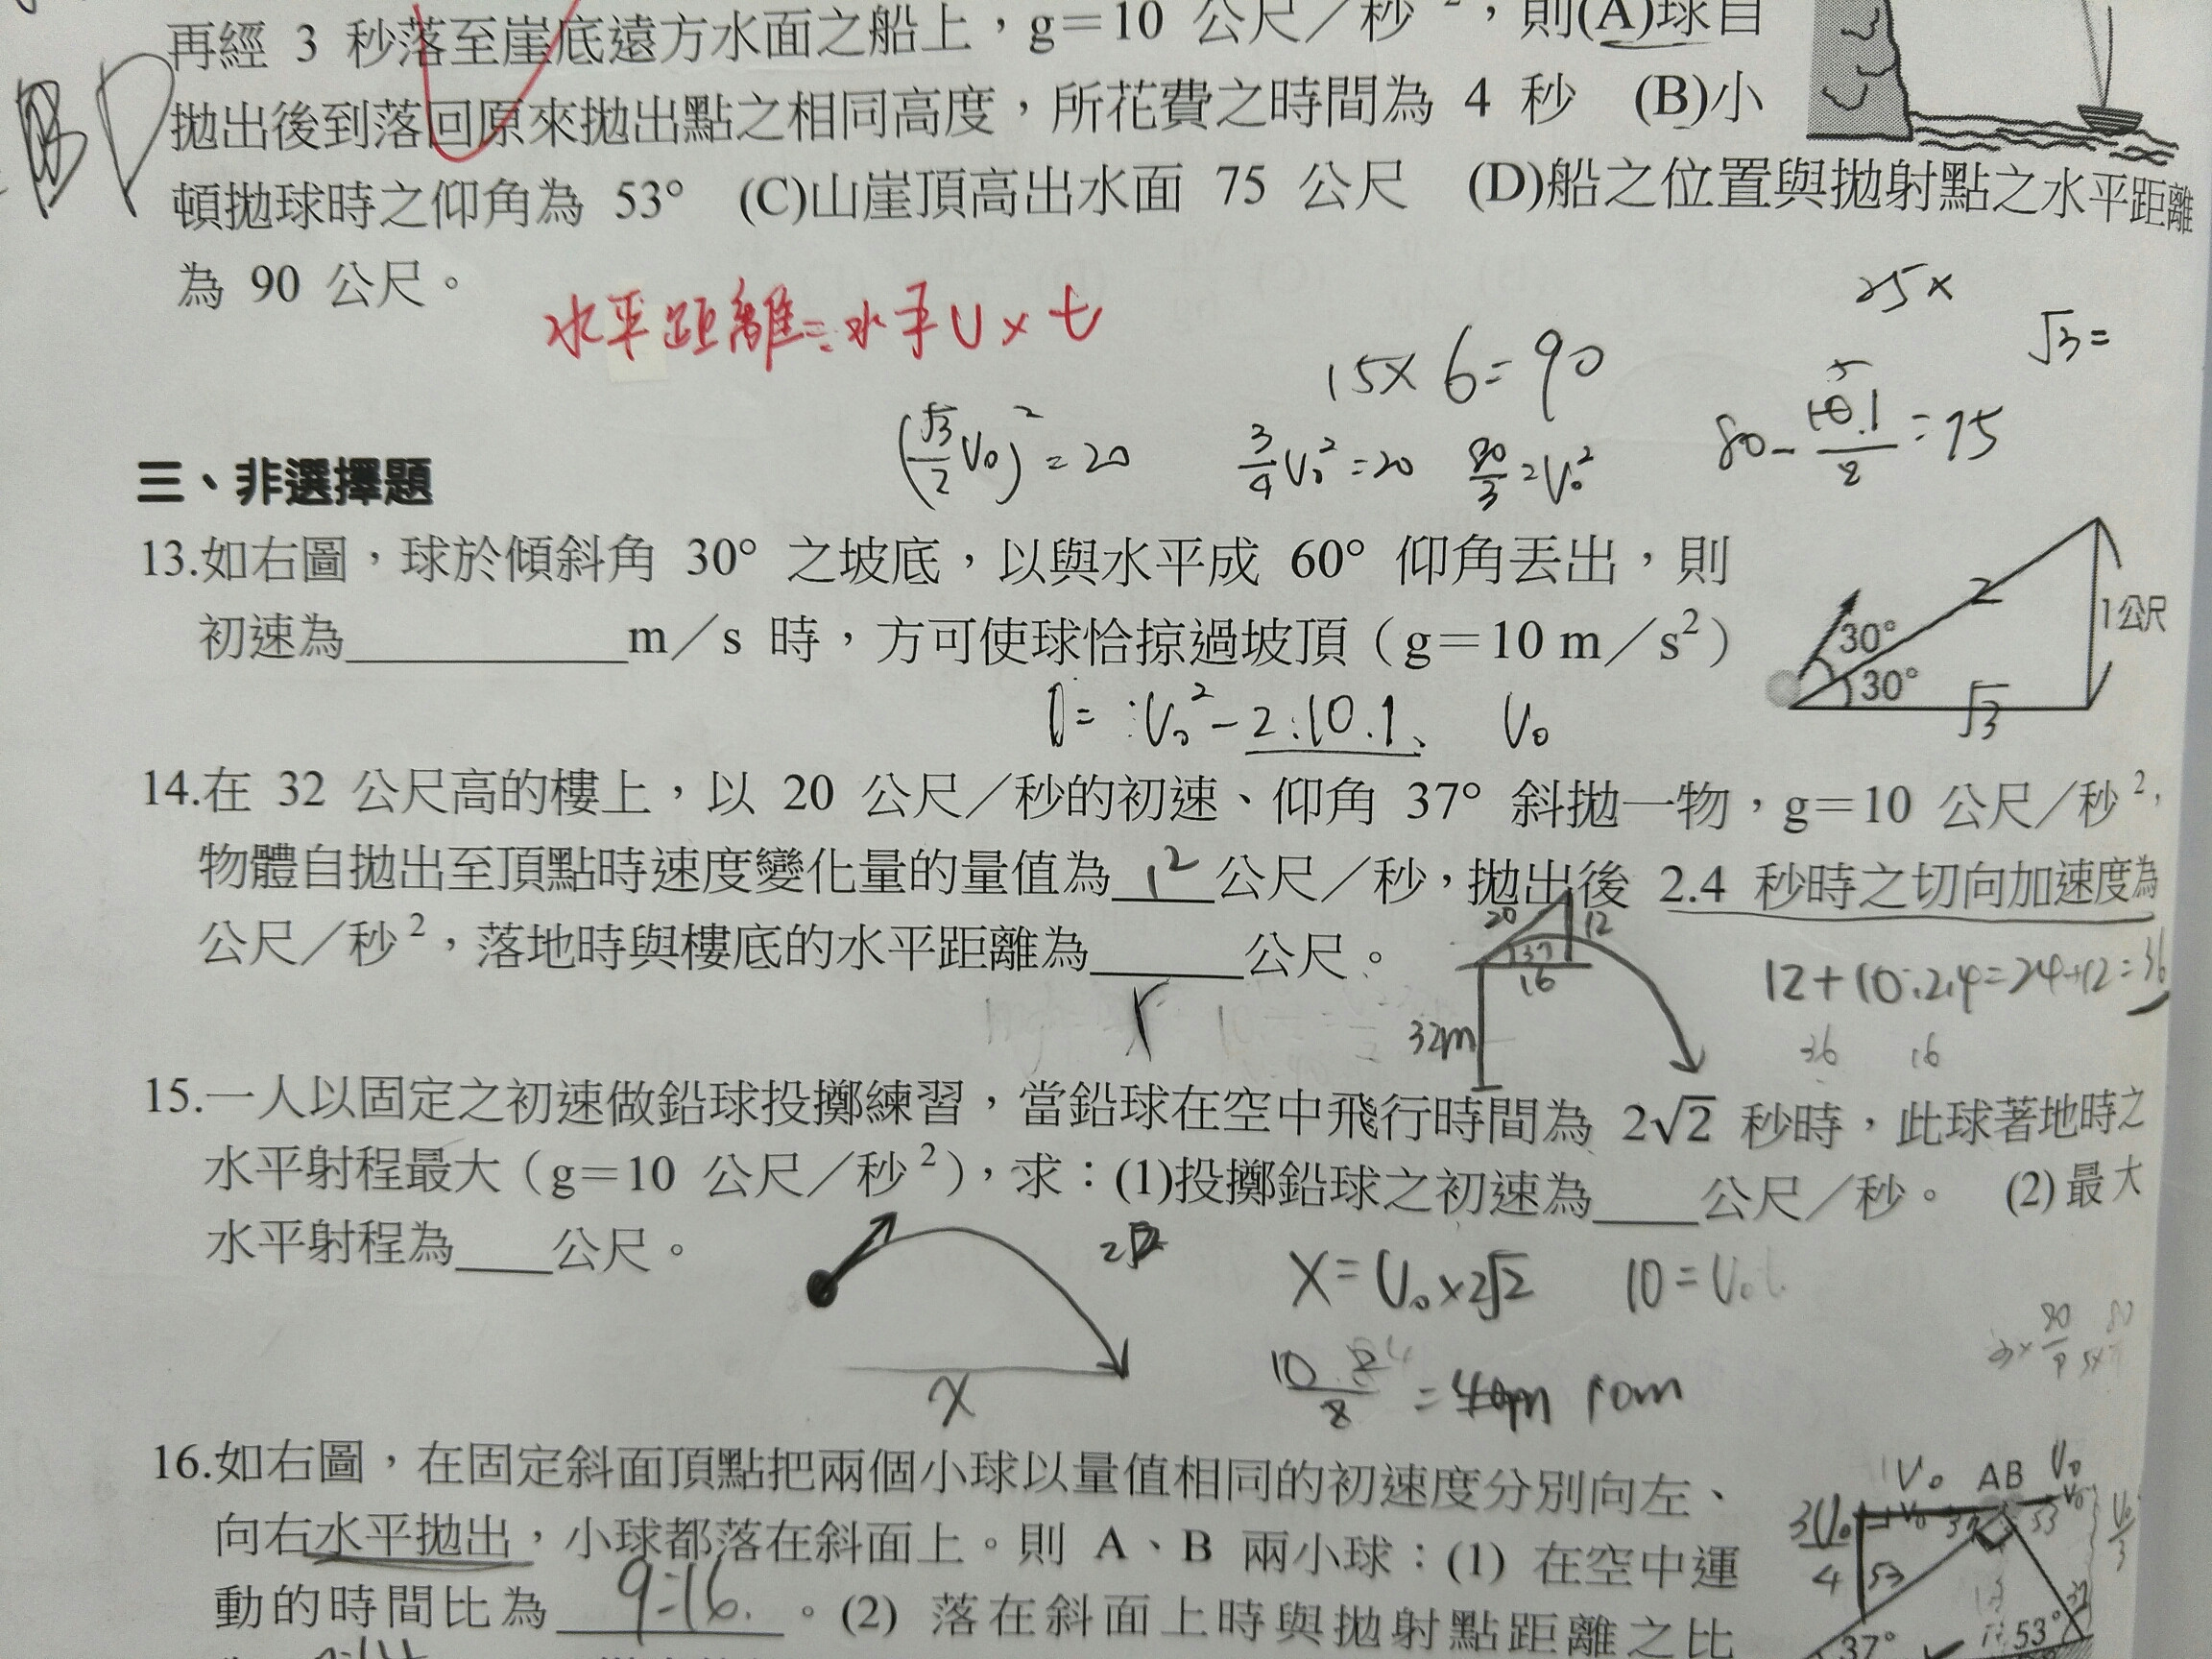 再經 3 秒落至崖底遠方水面之船上，g＝10 公尺／秒²，則(A)球自
拋出後到落回原來拋出點之相同高度，所花費之時間為 4 秒 (B)小
頓拋球時之仰角為 53° (C)山崖頂高出水面 75 公尺 (D)船之位置與拋射點之水平距離
為 90 公尺。
BD
水平距離=水平V×t
25×
√3=
15×6=90
(√3/2 V₀)²=20
3/4 V₀²=20
80/3=V₀²
80-10.1/2=75
三、非選擇題
13.如右圖，球於傾斜角 30° 之坡底，以與水平成 60° 仰角丟出，則
初速為____________m／s 時，方可使球恰掠過坡頂（g＝10 m／s²）
2
1公尺
30°
30°
√3
0= V₀²-2.10.1
V₀
14.在 32 公尺高的樓上，以 20 公尺／秒的初速、仰角 37° 斜拋一物，g＝10 公尺／秒²，
物體自拋出至頂點時速度變化量的量值為 12 公尺／秒，拋出後 2.4 秒時之切向加速度為
公尺／秒²，落地時與樓底的水平距離為______公尺。
20
12
37
16
32m
12+10.2.4=24+12=36
36 16
15.一人以固定之初速做鉛球投擲練習，當鉛球在空中飛行時間為 2√2 秒時，此球著地時之
水平射程最大（g＝10 公尺／秒²），求：(1)投擲鉛球之初速為____公尺／秒。 (2)最大
水平射程為____公尺。
X
X=V₀×2√2
10=V₀t
16.如右圖，在固定斜面頂點把兩個小球以量值相同的初速度分別向左、
向右水平拋出，小球都落在斜面上。則 A、B 兩小球：(1) 在空中運
動的時間比為 9:16 。(2) 落在斜面上時與拋射點距離之比
V₀ AB V₀
3V₀/4
53
37°
53°